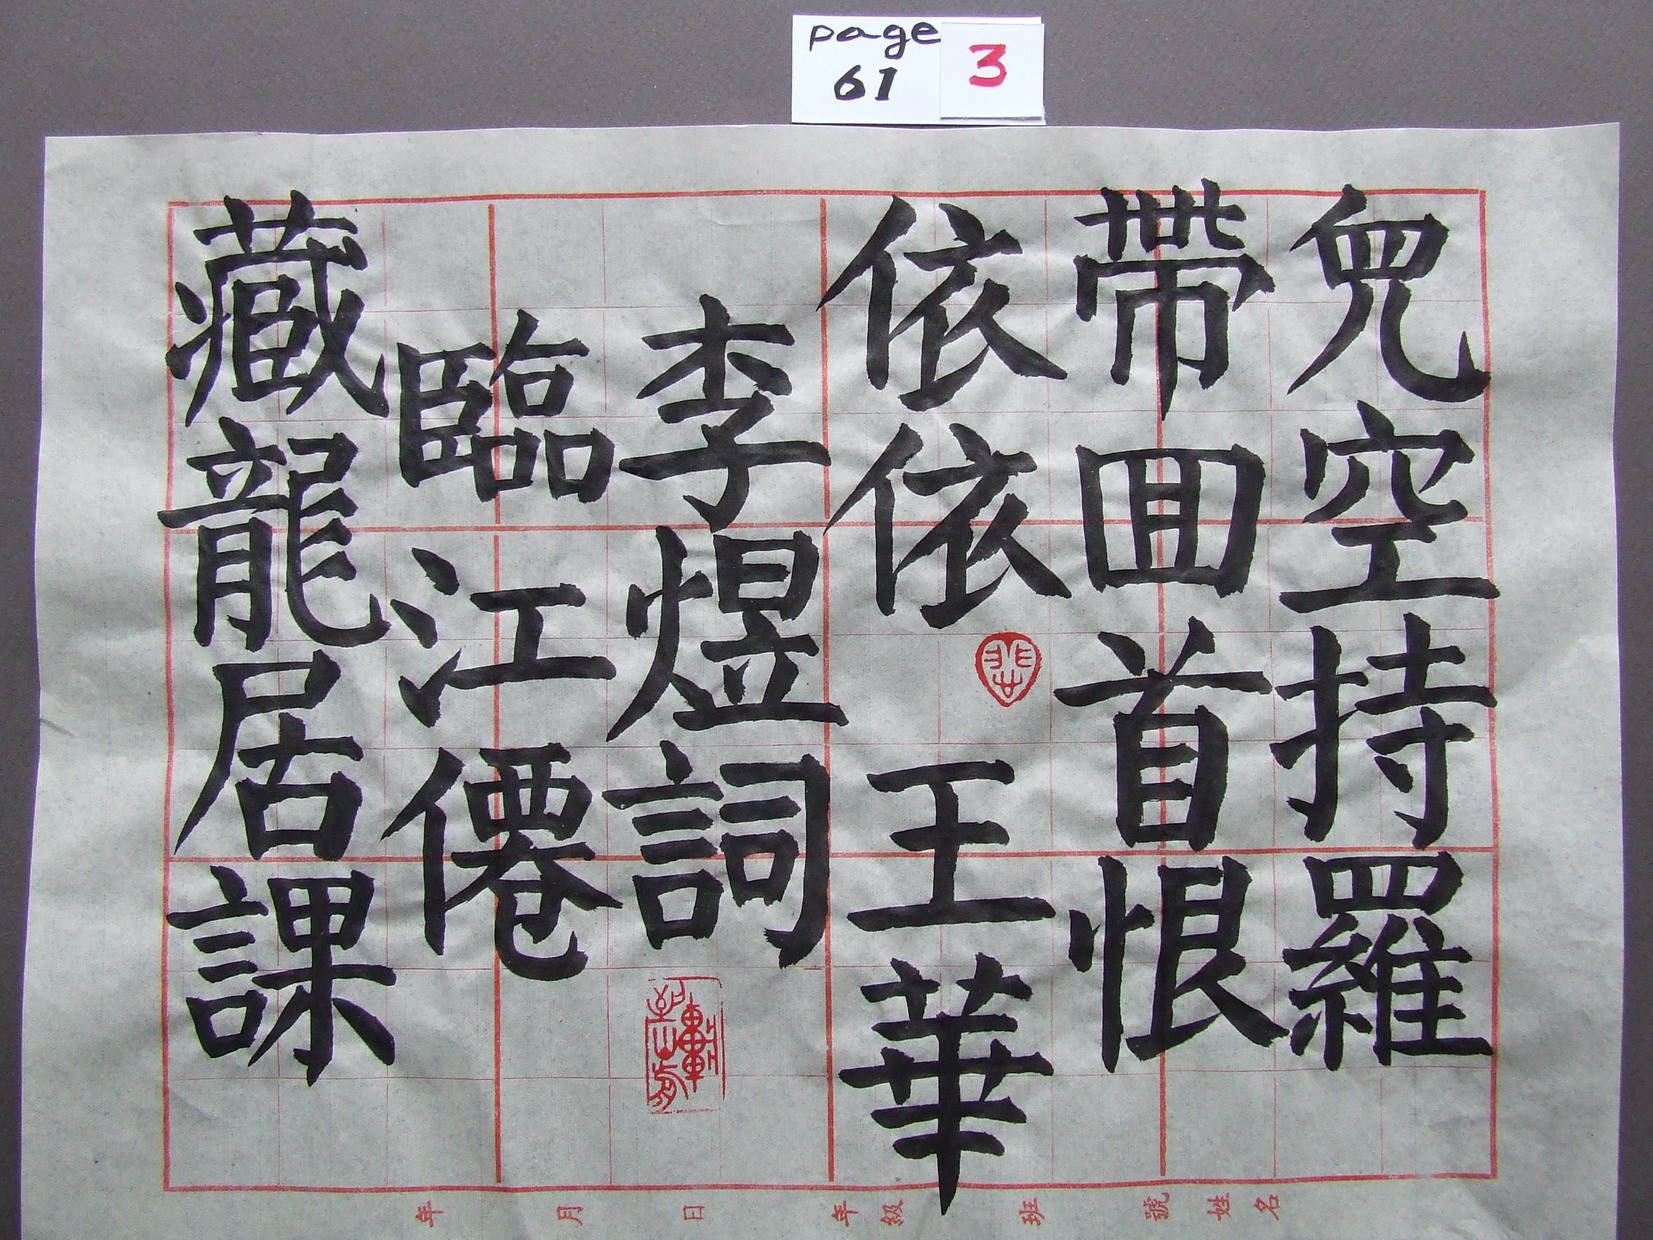 page
61
3
兒空持羅
帶回首恨
依依 王華
李煜詞
臨江僊
藏龍居課
年 月 日 年級 班 號 姓名